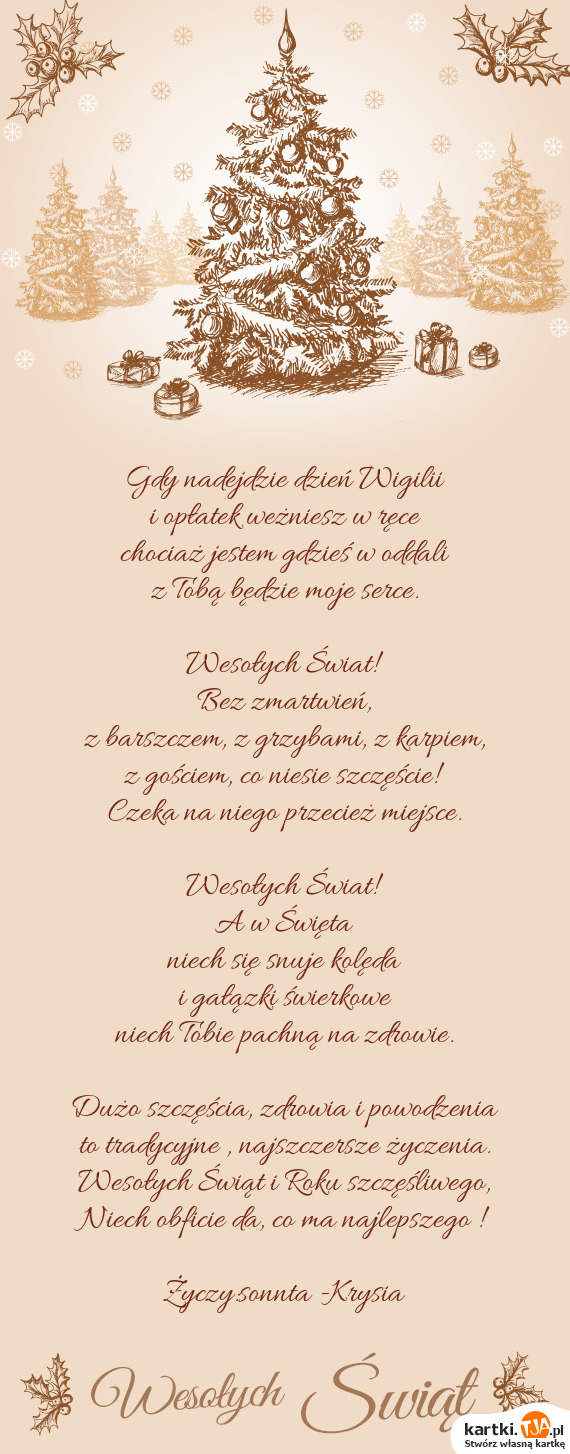 Gdy nadejdzie dzień Wigilii
i opłatek weżniesz w ręce
chociaż jestem gdzieś w oddali
z Tobą będzie moje serce.
Wesołych Świat!
Bez zmartwień,
z barszczem, z grzybami, z karpiem,
z gościem, co niesie szczęście!
Czeka na niego przecież miejsce.
Wesołych Świat!
A w Święta
niech się snuje kolęda
i gałązki świerkowe
niech Tobie pachną na zdrowie.
Dużo szczęścia, zdrowia i powodzenia
to tradycyjne , najszczersze życzenia.
Wesołych Świąt i Roku szczęśliwego,
Niech obficie da, co ma najlepszego !
Życzy:sonnta -Krysia
Wesołych Świąt
kartki.TJA.pl
Stwórz własną kartkę